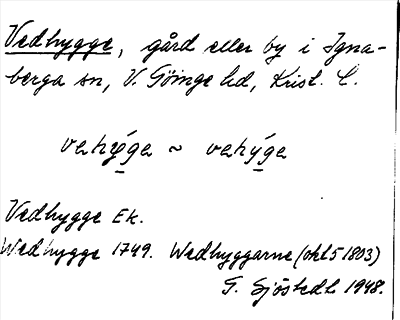 Vedhygge, gård eller by i Igna-
berga sn, V. Göinge hd, Krist. l.
vehýge ~ vehýge
Vedhygge Ek.
Wedhygge 1749. Wedhyggarne (okt 5 1803)
G. Sjöstedt 1948.